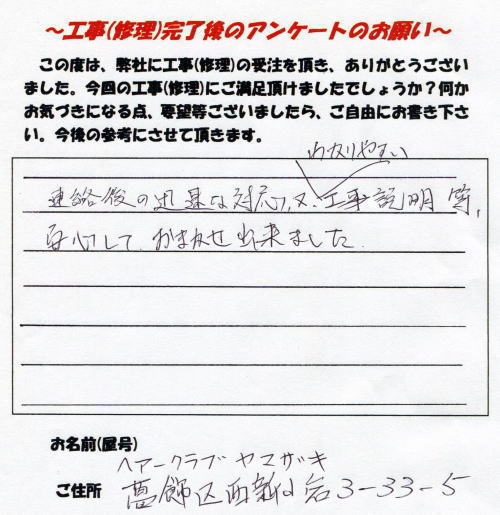 ～工事(修理)完了後のアンケートのお願い～
この度は、弊社に工事(修理)の受注を頂き、ありがとうござい
ました。今回の工事(修理)にご満足頂けましたでしょうか？何か
お気づきになる点、要望等ございましたら、ご自由にお書き下さ
い。今後の参考にさせて頂きます。
わかりやすい
連絡後の迅速な対応、又、工事説明等、
安心して、おまかせ出来ました。
お名前(屋号)
ヘアークラブ ヤマザキ
ご住所 葛飾区西新小岩3-33-5